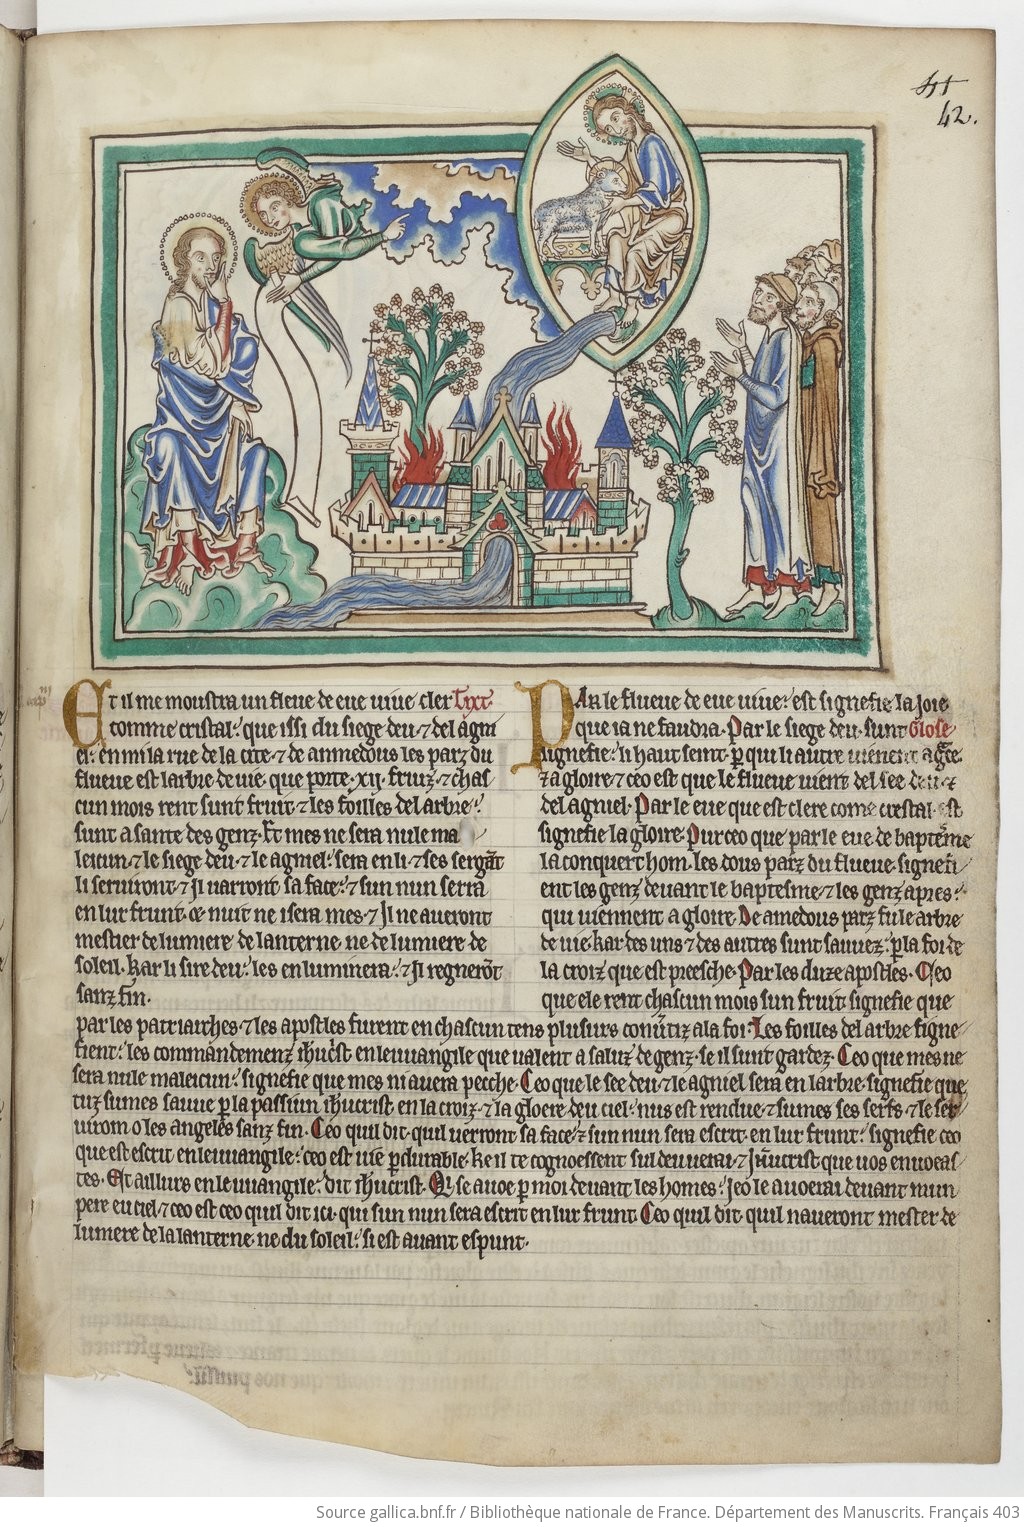 42.
Et il me moustra un fleve de eve vive cler Tixt.
comme cristal: que issi du siege deu ⁊ del agni
el: enmi la rue de la cite ⁊ de anmedous les parz du
flueve est larbre de vie. que porte .xij. fruiz ⁊ chas
cun mois rent sunt fruit ⁊ les foilles del arbre:
sunt a sante des genz. Et mes ne sera nule ma
leicun ⁊ le siege deu ⁊ le agniel: sera en li ⁊ ses serganz
li serviront ⁊ il varront sa face: ⁊ sun nun serra
en lur frunt. ce nuit ne isera mes ⁊ Il ne averont
mestier de lumiere de lanterne ne de lumiere de
soleil. Kar li sire deu: les enluminera: ⁊ Il regneront
sanz fin.
Par le flueve de eve vive: est signefie la Joie
que ia ne faudra. Par le siege deu. sunt Glose
signefie: li haut seint. par qui li autre vienent a grace
⁊ a gloire ⁊ ceo est que le flueve vient del see deu ⁊
del agniel. Par le eve que est clere come crestal. est
signefie la gloire. Pur ceo que par le eve de baptesme
la conquert hom. Les dous parz du flueve. signefi
ent les genz devant le baptesme ⁊ les genz apres:
qui viennent a gloire. De amedous parz fu le arbre
de vie. kar des uns ⁊ des autres sunt sauvez: par la foi de
la croiz que est preesche. Par les duze apostles. Ceo
que ele rent chascun mois sun fruit signefie que
par les patriarches. ⁊ les apostles furent en chascun tens plusurs convertiz a la foi. Les foilles del arbre signe
fient: les commandemenz ihucrist en levvangile que valent a saluz de genz. se il sunt gardez. Ceo que mes ne
sera nule maleicun: signefie que mes ni avera pecche. Ceo que le see deu ⁊ le agniel sera en larbre. signefie que
tuz sumes sauve par la passiun ihucrist. en la croiz. ⁊ la gloere deu ciel. nus est rendue ⁊ sumes ses serfs. ⁊ le ser
virom o les angeles sanz fin. Ceo quil dit. quil verront sa face: ⁊ sun nun sera escrit. en lur frunt: signefie ceo
que est escrit en levvangile: ceo est vie pardurable. Ke il te cognoessent sul deu verai ⁊ ihucrist que vos enveas
tes. Et aillurs en le vvangile: dit ihucrist. Qi se avoe par moi devant les homes: Jeo le avoerai devant mun
pere eu ciel. ⁊ ceo est ceo quil dit ici. qui sun nun sera escrit en lur frunt. Ceo quil dit. quil naveront mester de
lumere de la lanterne. ne du soleil: si est avant espunt.
Source gallica.bnf.fr / Bibliothèque nationale de France. Département des Manuscrits. Français 403